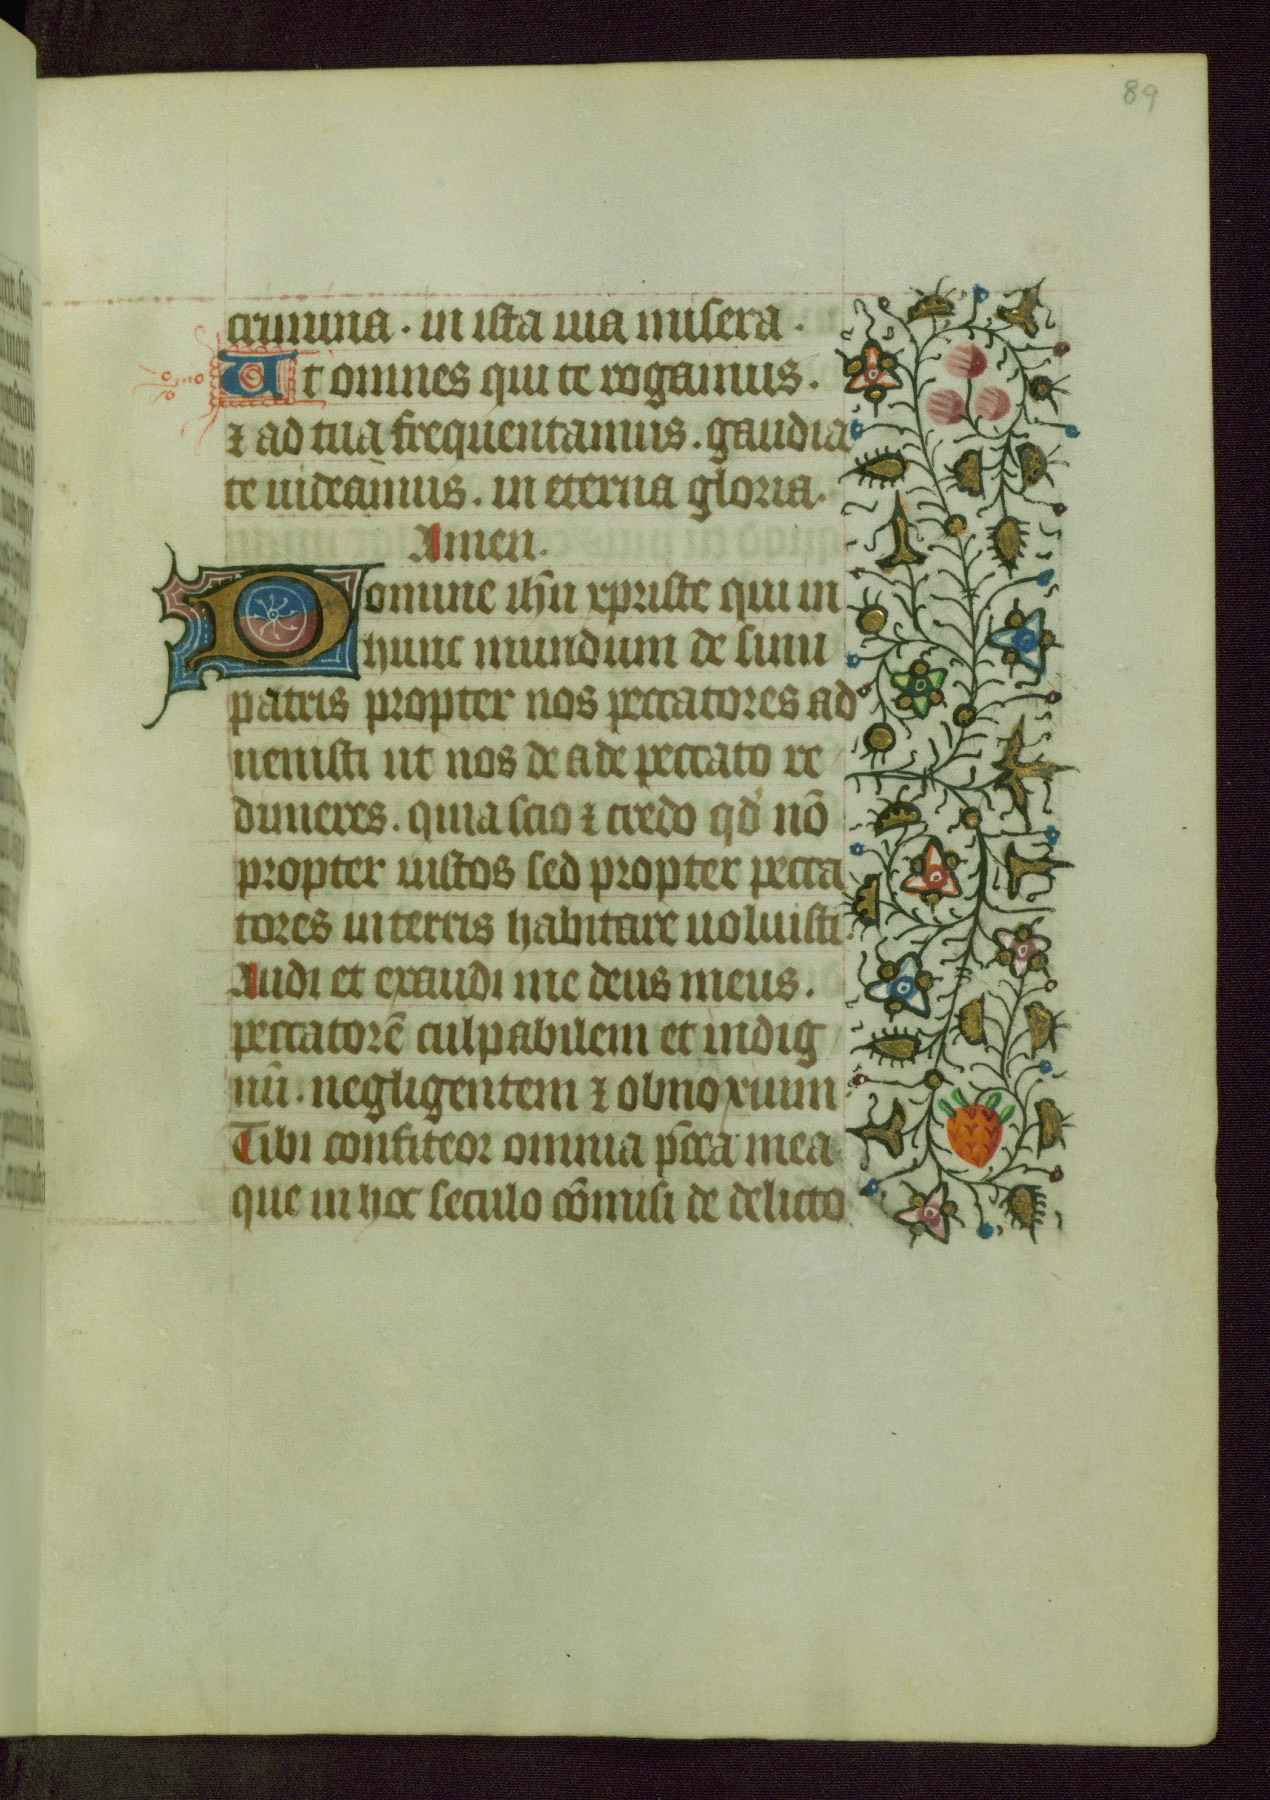 89
crimina · in ista uia misera ·
Ut omnes qui te rogamus ·
⁊ ad tuā frequentamus . gaudia
te uideamus . in eterna gloria .
Amen .
Domine ihū xpriste qui in
hunc mundum de sinu
patris propter nos peccatores ad
uenisti ut nos de ade peccato re
dimeres . quia scio ⁊ credo qd̓ nō
propter iustos sed propter pecca
tores in terris habitare uoluisti .
Audi et exaudi me deus meus .
peccatorē culpabilem et indig
nū . negligentem ⁊ obnoxium
Tibi confiteor omnia p̄cca mea
que in hoc seculo cōmisi de delicto